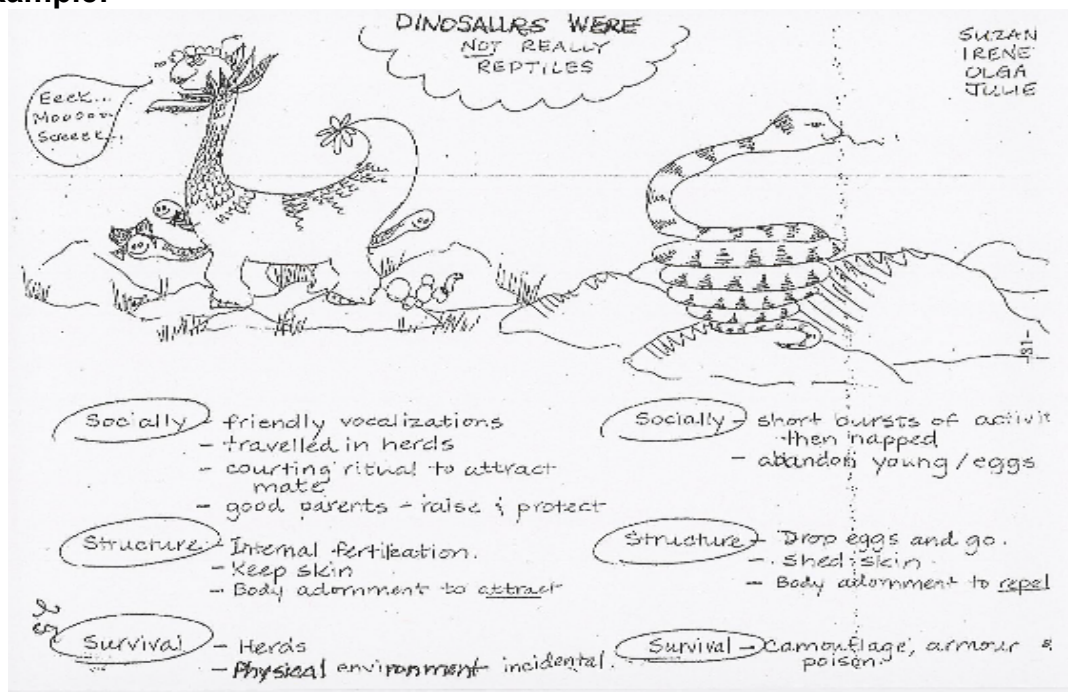 ample:
DINOSAURS WERE
NOT REALLY
REPTILES
SUZAN
IRENE
OLGA
JULIE
Eeek...
Mooooo
Screeek...
-31-
Socially - friendly vocalizations
- travelled in herds
- courting ritual to attract
mate
- good parents - raise & protect
Structure - Internal fertilization.
- Keep skin
- Body adornment to attract
Survival - Herds
- Physical environment incidental.
Socially - short bursts of activit
then napped
- abandon young/eggs
Structure - Drop eggs and go.
- Shed skin
- Body adornment to repel
Survival - Camouflage, armour &
poison